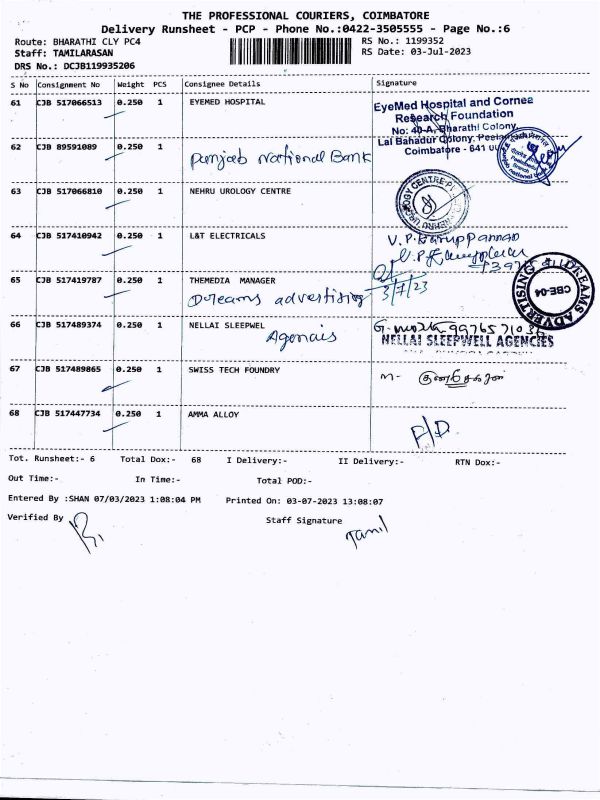 THE PROFESSIONAL COURIERS, COIMBATORE
Delivery Runsheet - PCP - Phone No.:0422-3505555 - Page No.:6
Route: BHARATHI CLY PC4
RS No.: 1199352
Staff: TAMILARASAN
RS Date: 03-Jul-2023
DRS No.: DCJB119935206
S No Consignment No Weight PCS Consignee Details Signature
61 CJB 517066513 0.250 1 EYEMED HOSPITAL
EyeMed Hospital and Cornea
Research Foundation
No: 40-A, Bharathi Colony,
Lal Bahadur Colony,
Coimbatore - 641
62 CJB 89591089 0.250 1
Punjab National Bank
63 CJB 517066810 0.250 1 NEHRU UROLOGY CENTRE
64 CJB 517410942 0.250 1 L&T ELECTRICALS
V.P.Karuppannan
65 CJB 517419787 0.250 1 THEMEDIA MANAGER
Dreams advertising
3/7/23
DREAMS ADVERTISING
CBE-04
66 CJB 517489374 0.250 1 NELLAI SLEEPWEL
Agencies
NELLAI SLEEPWELL AGENCIES
67 CJB 517489865 0.250 1 SWISS TECH FOUNDRY
68 CJB 517447734 0.250 1 AMMA ALLOY
Tot. Runsheet:- 6 Total Dox:- 68 I Delivery:- II Delivery:- RTN Dox:-
Out Time:- In Time:- Total POD:-
Entered By :SHAN 07/03/2023 1:08:04 PM Printed On: 03-07-2023 13:08:07
Verified By
Staff Signature
Tamil